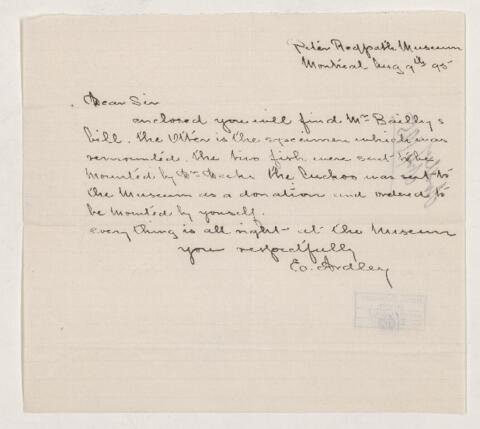 Peter Redpath Museum
Montreal Aug 9th 95
Dear Sir
enclosed you will find Mr Bailly's
bill. the Otter is the specimen which was
remounted. the two fish were sent to be
mounted by Dr the Cuckoo was sent to
the Museum as a donation and ordered to
be mounted by yourself.
everything is all right at the Museum
your respectfully
Ed. Ardley